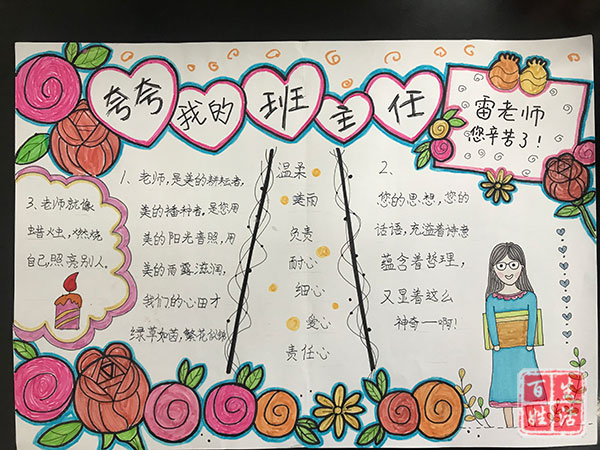 夸夸我的班主任
雷老师
您辛苦了！
1、老师,是美的耕耘者,
美的播种者,是您用
美的阳光普照,用
美的雨露滋润,
我们的心田才
绿草如茵,繁花似锦
温柔
美丽
负责
耐心
细心
爱心
责任心
2、
您的思想,您的
话语,充溢着诗意
蕴含着哲理,
又显着这么
神奇一啊!
3、老师就像
蜡火虫,燃烧
自己,照亮别人。
百姓生活